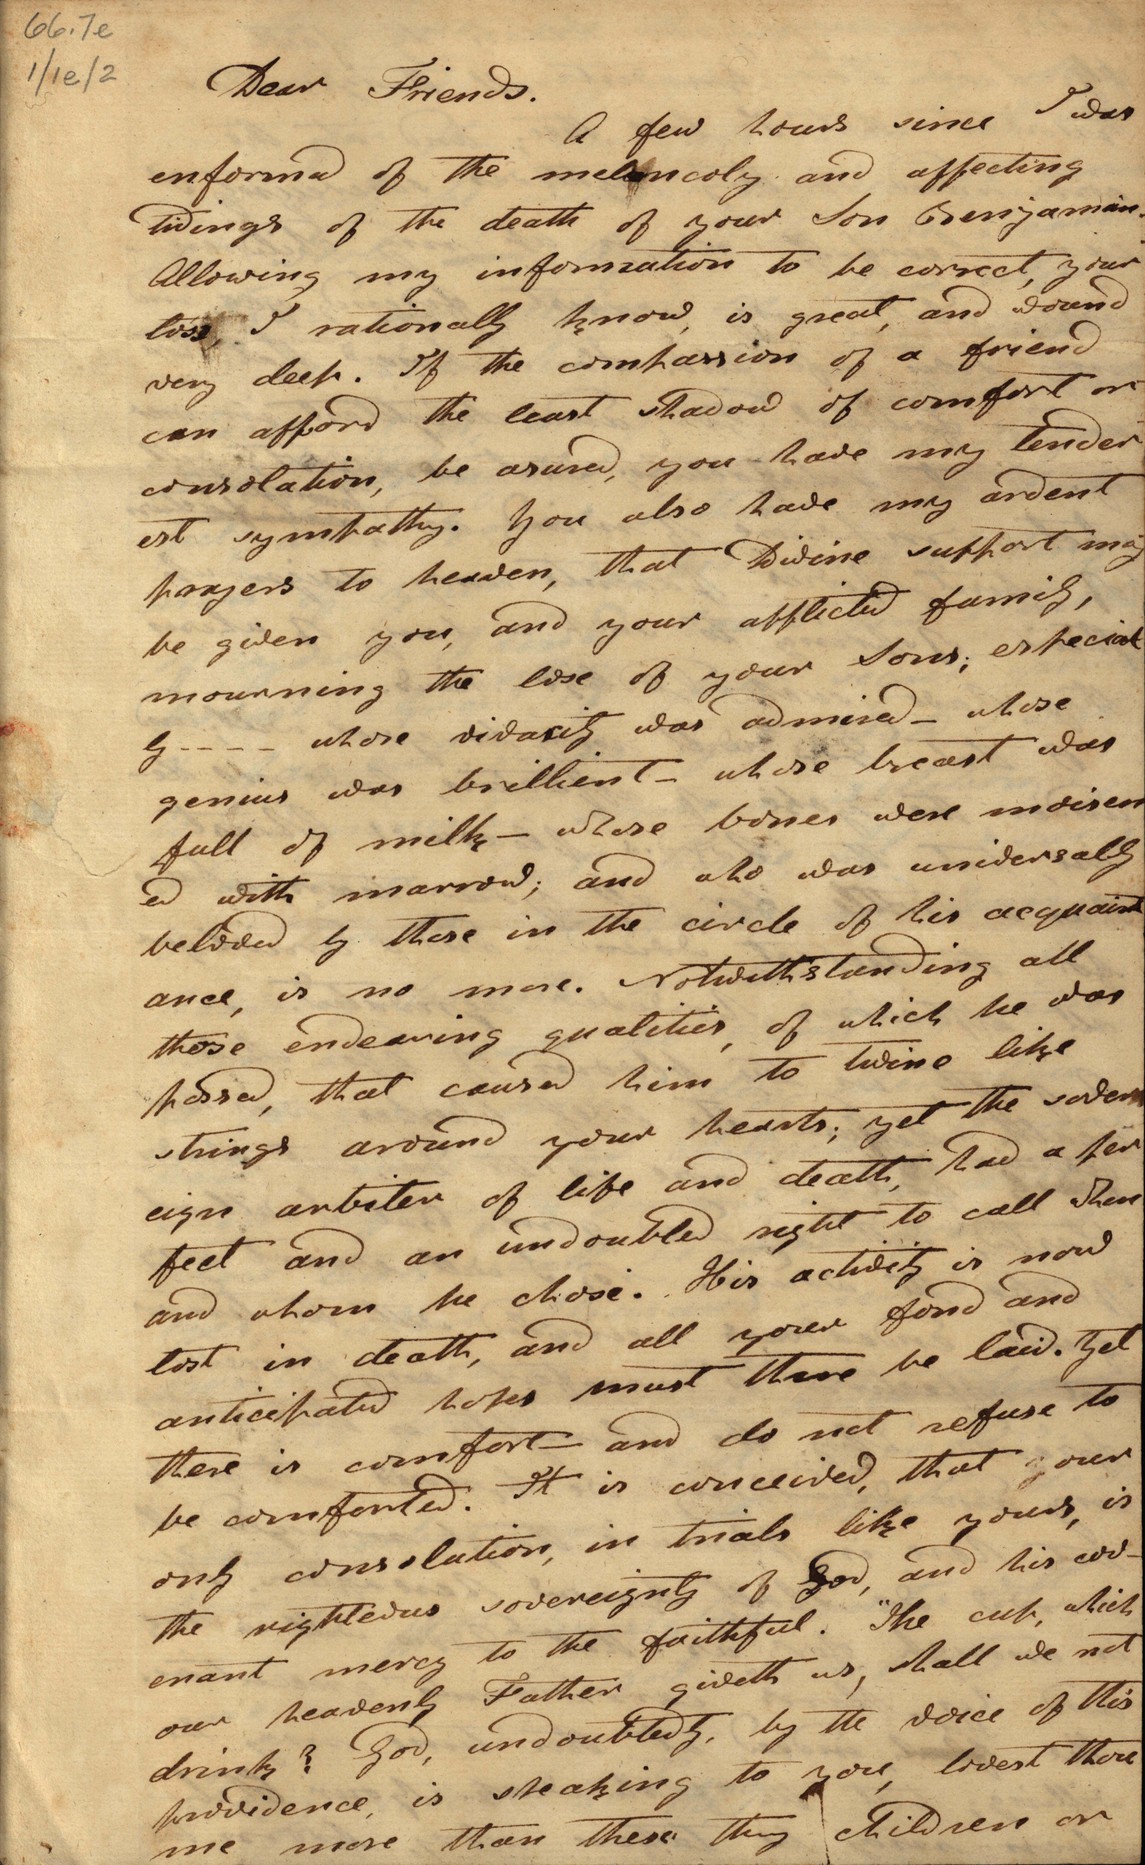 66.7e
1/1e/2
Dear Friends.
A few hours since I was
enformed of the melancoly and affecting
tidings of the death of your Son Benjamin.
Allowing my information to be correct, your
loss, I rationally know, is great, and wound
very deep. If the compassion of a friend
can afford the least shadow of comfort or
consolation, be asured, you have my tender
est sympathy. You also have my ardent
prayers to heaven, that Divine support may
be given you, and your afflicted family,
mourning the lose of your Sons; especial
ly ---- whose vivacity was admired - whose
genius was brillient - whose breast was
full of milk - whose bones were moisen
ed with marrow; and who was universally
beloved by those in the circle of his acquaint
ance, is no more. Notwithstanding all
those endearing qualities, of which he was
possed, that caused him to twine like
strings around your hearts; yet the sover
eign arbiter of life and death, had a per
fect and an undoubted right to call when
and whom he chose. His activity is now
lost in death, and all your fond and
anticipated hopes must there be laid. Yet
there is comfort - and do not refuse to
be comforted. It is conceived, that your
only consolation, in trials like yours, is
the righteous sovereignty of God, and his cov-
enant mercy to the faithful. "The cup, which
our heavenly Father giveth us, shall we not
drink? God, undoubtedly, by the voice of this
providence, is speaking to you, lovest thou
me more than these thy children or